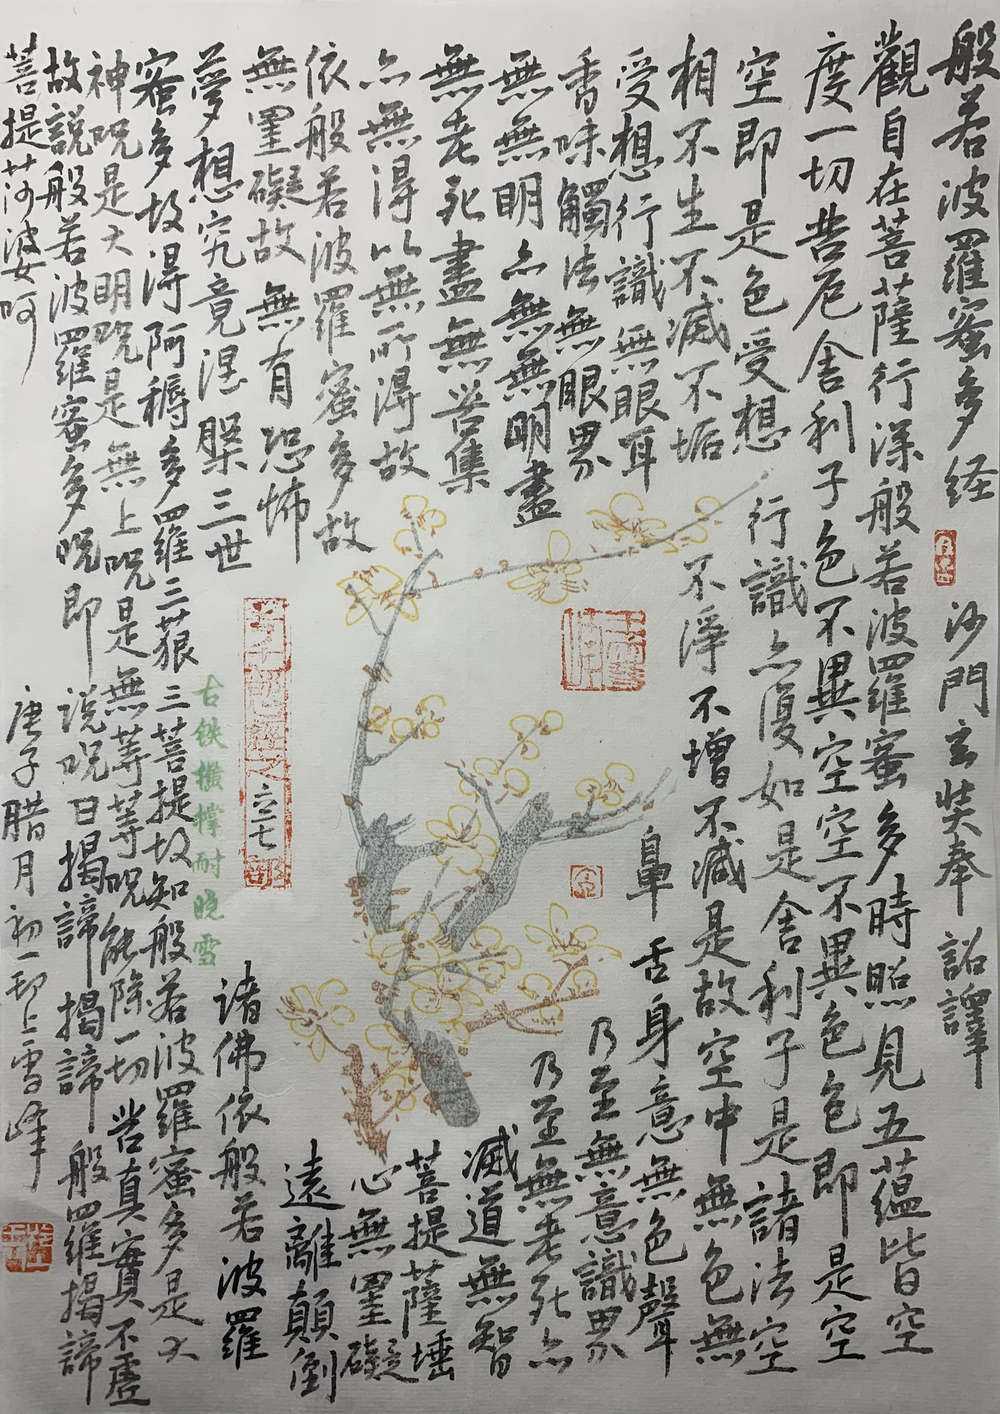 般若波羅蜜多经 沙門玄奘奉 詔譯
觀自在菩薩行深般若波羅蜜多時照見五蕴皆空
度一切苦厄舍利子色不異空空不異色色即是空
空即是色受想 行識亦復如是舍利子是諸法空
相不生不滅不垢 不淨不增不減是故空中無色無
受想行識無眼耳 鼻舌身意無色聲
香味觸法無眼界 乃至無意識界
無無明亦無無明盡 乃至無老死亦
無老死盡無苦集 滅道無智
亦無得以無所得故 菩提薩埵
依般若波羅蜜多故 心無罣礙
無罣礙故無有恐怖 遠離顛倒
夢想究竟涅槃三世 諸佛依般若波羅
蜜多故得阿耨多羅三藐三菩提故知般若波羅蜜多是大
神咒是大明咒是無上咒是無等等咒能除一切苦真實不虛
故説般若波羅蜜多咒即 説咒曰揭諦揭諦 般羅揭諦
菩提莎婆呵
庚子腊月初一邨上雪峰
古铁橫撑耐晚雪
之六七部